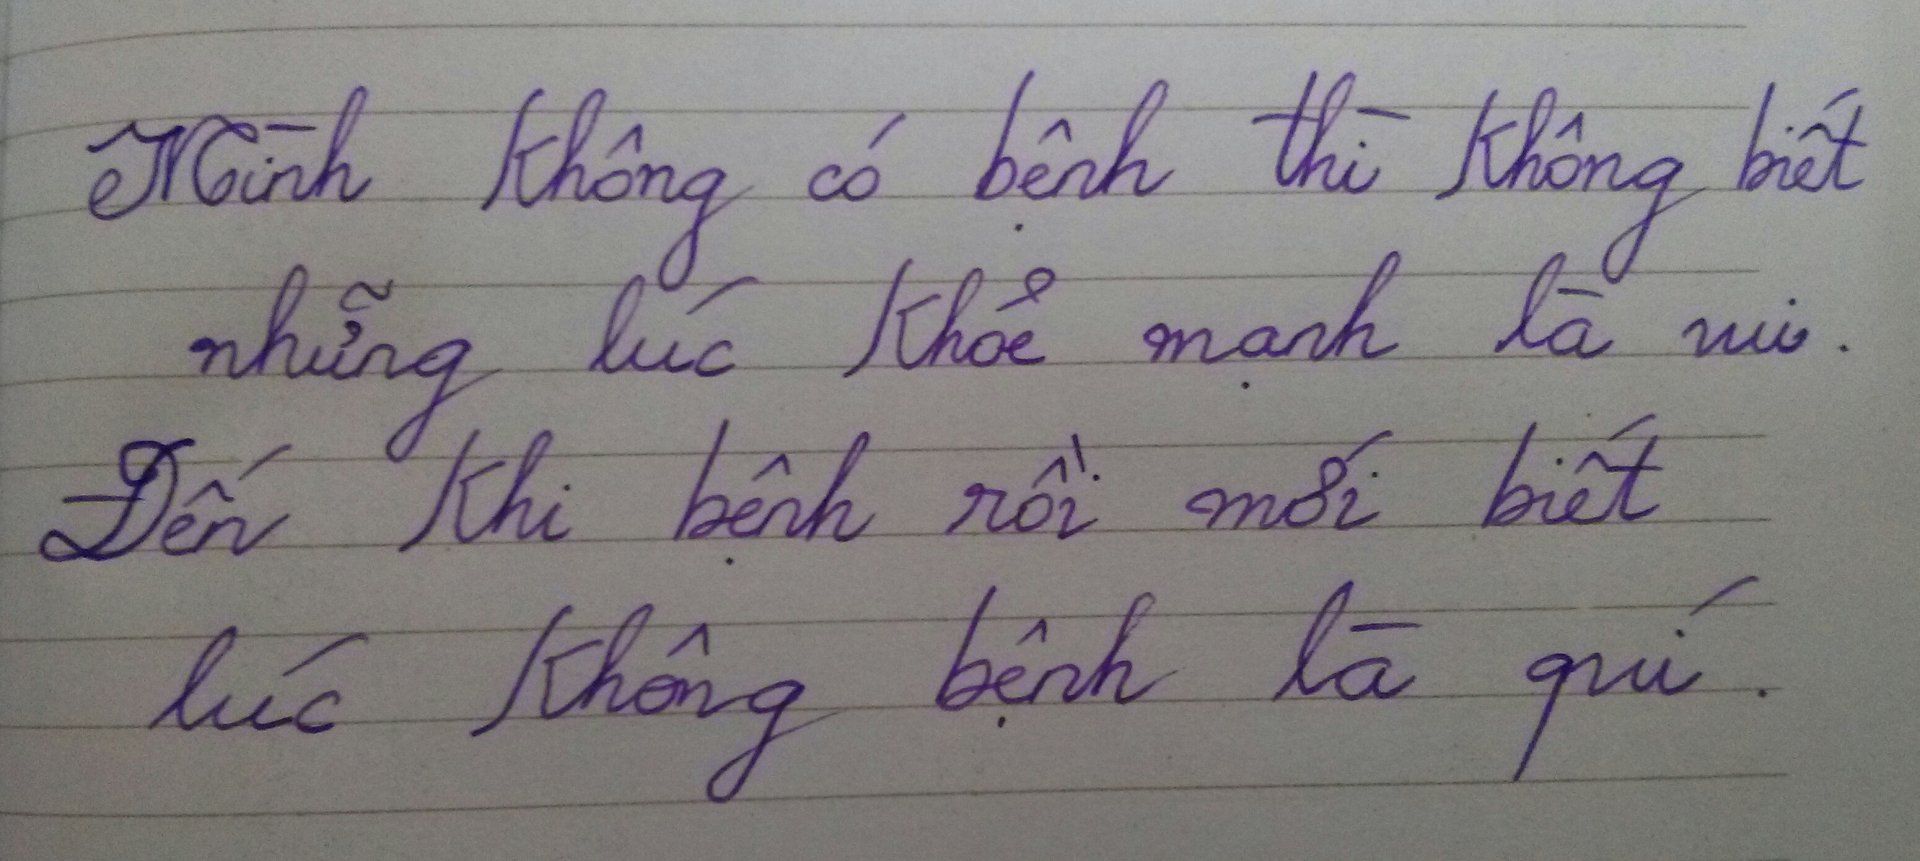 Mình không có bệnh thì không biết
những lúc khỏe mạnh là vui.
Đến khi bệnh rồi mới biết
lúc không bệnh là quí.